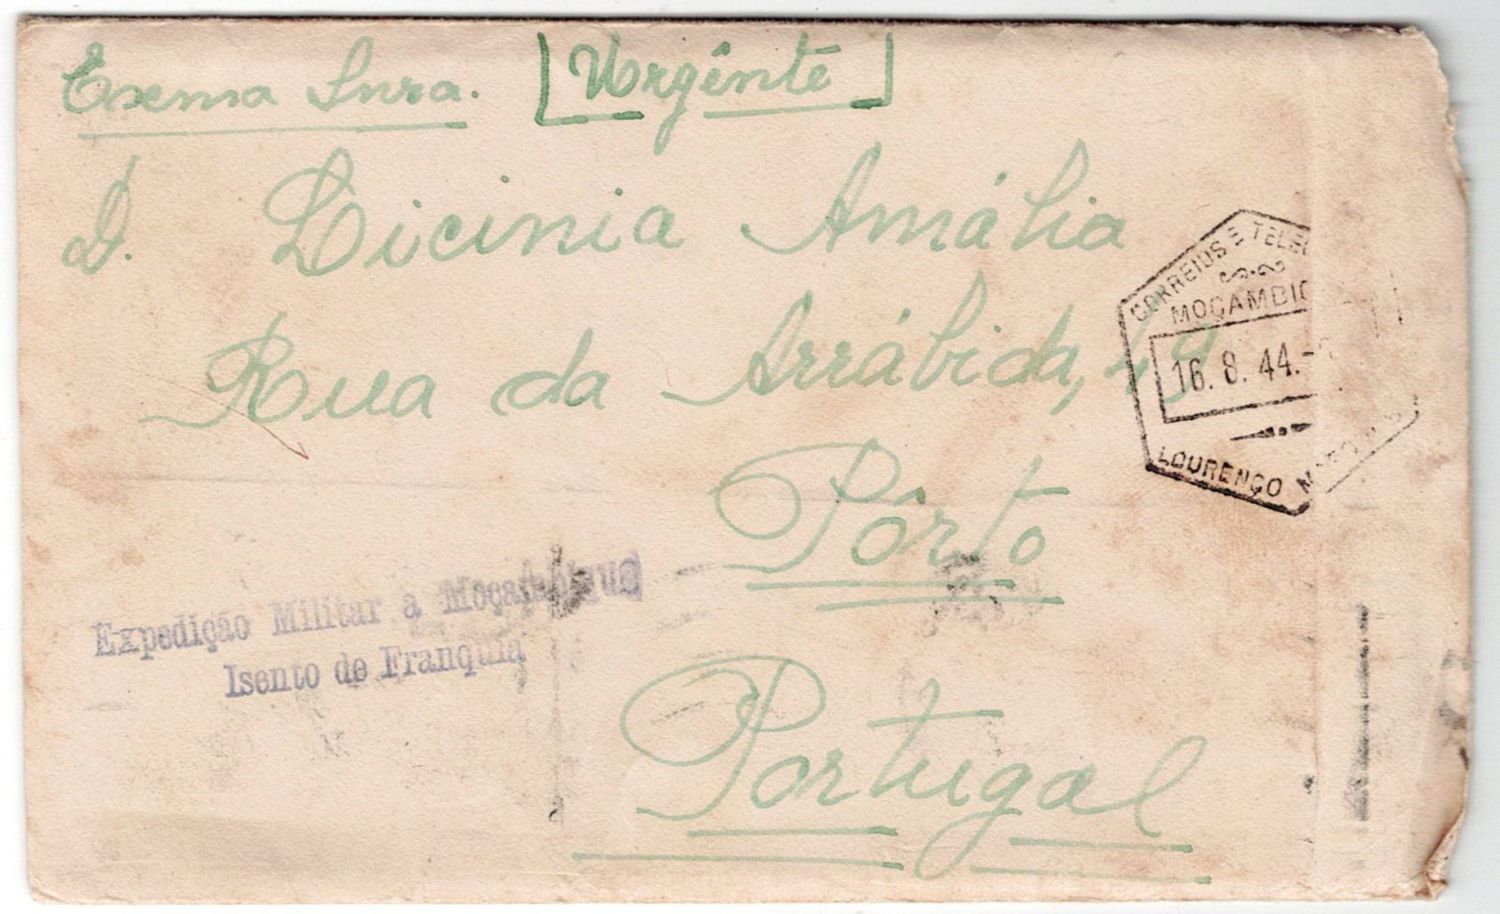 Exema Snra. [Urgênte]
D. Licinia Amália
Rua da Arrábida, 49
Pôrto
Portugal
CORREIOS E TELE
MOÇAMBI
16. 8. 44.-
LOURENÇO
Expedição Militar a Moçambique
Isento de Franquia